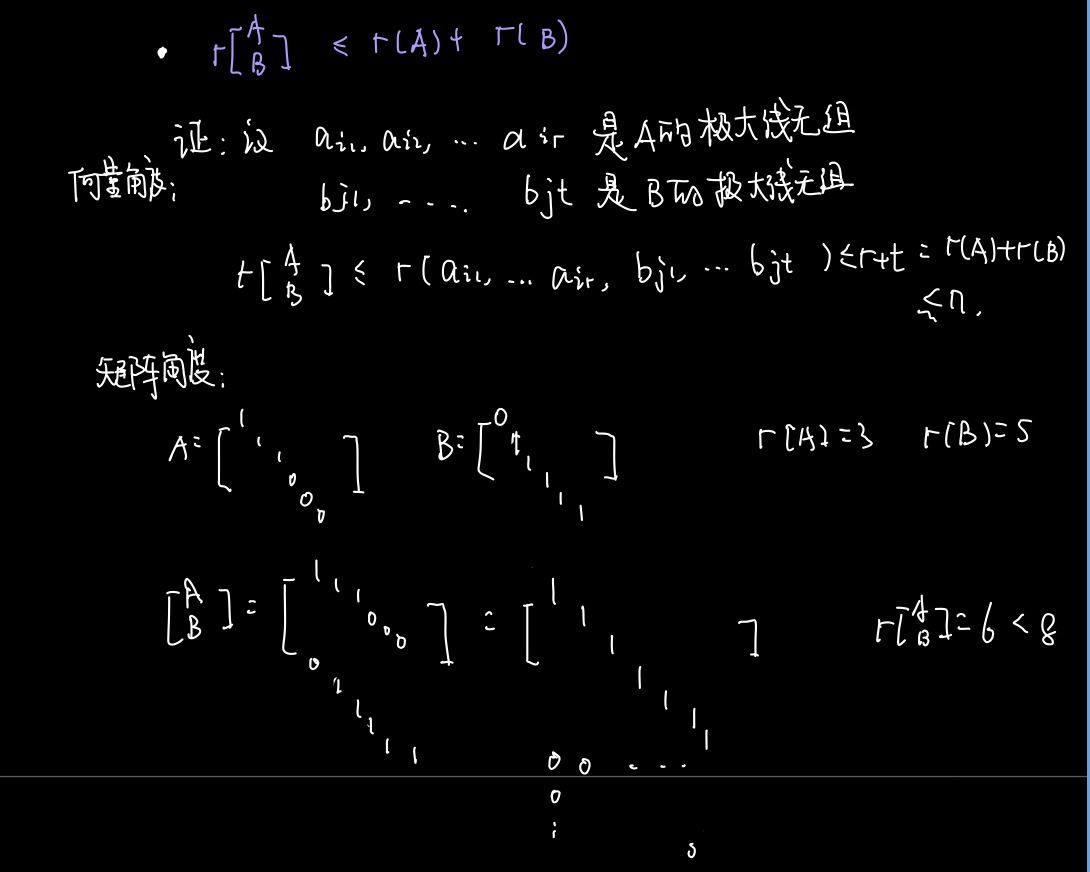 • r[A B] ≤ r(A)+ r(B)
证: 设 ai1, ai2, … air 是A的极大线无组
向量角度:
bj1, ----. bjt 是B的极大线无组
r[A B] ≤ r(ai1, … air, bj1, … bjt) ≤r+t = r(A)+r(B)
≤n.
矩阵角度:
A= [1 1 1 0 0 0] B= [0 1 1 1 1 1] r(A)=3 r(B)=5
[A B] = [1 1 1 0 0 0 0 1 1 1 1 1] = [1 1 1 1 1 1 1 ] r[A B]=6 < 8
0 0 - - -
0
: